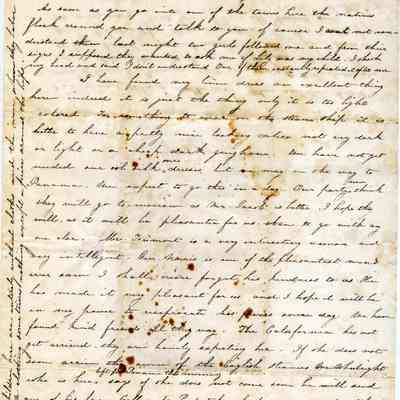 As soon as you go into one of the towns here the natives
flock around you and talk to you of course I could not un-
derstand them last night two girls followed me and from their
signs I supposed they wanted to ask me if was my child. I shook
my head and said I don't understand. One of them instantly repeated it after me
I have found my linen dress an excellent thing
here indeed it is just the thing only it is too light
colored. For something to wear on the steam ship it is
better to have a pretty nice looking calico not very dark
or light or a cheap dark gingham. We have not yet
needed our silk dresses but may on the way to
Panama. We expect to go there in a day. Our party think
they will go to-morrow as Mr. is better. I hope they
will, as it will be pleasanter for us than to go with any
one else. Mrs. Fremont is a very interesting woman and
very intelligent. is one of the pleasantest men I
ever saw I shall never forget his kindness to us. He
has made it very pleasant for us and I hope it will be
in our power to reciprocate his favors some day. We have
found kind friends all the way. The California has not
yet arrived they are hourly expecting her. If she does not
arrive the owner of the English Steamer
left for Panama this morning
who is here says if she does not come soon he will send
one of his
children here are entirely without clothes and the women have they labor
a clothing sometimes nothing except a piece around the hips